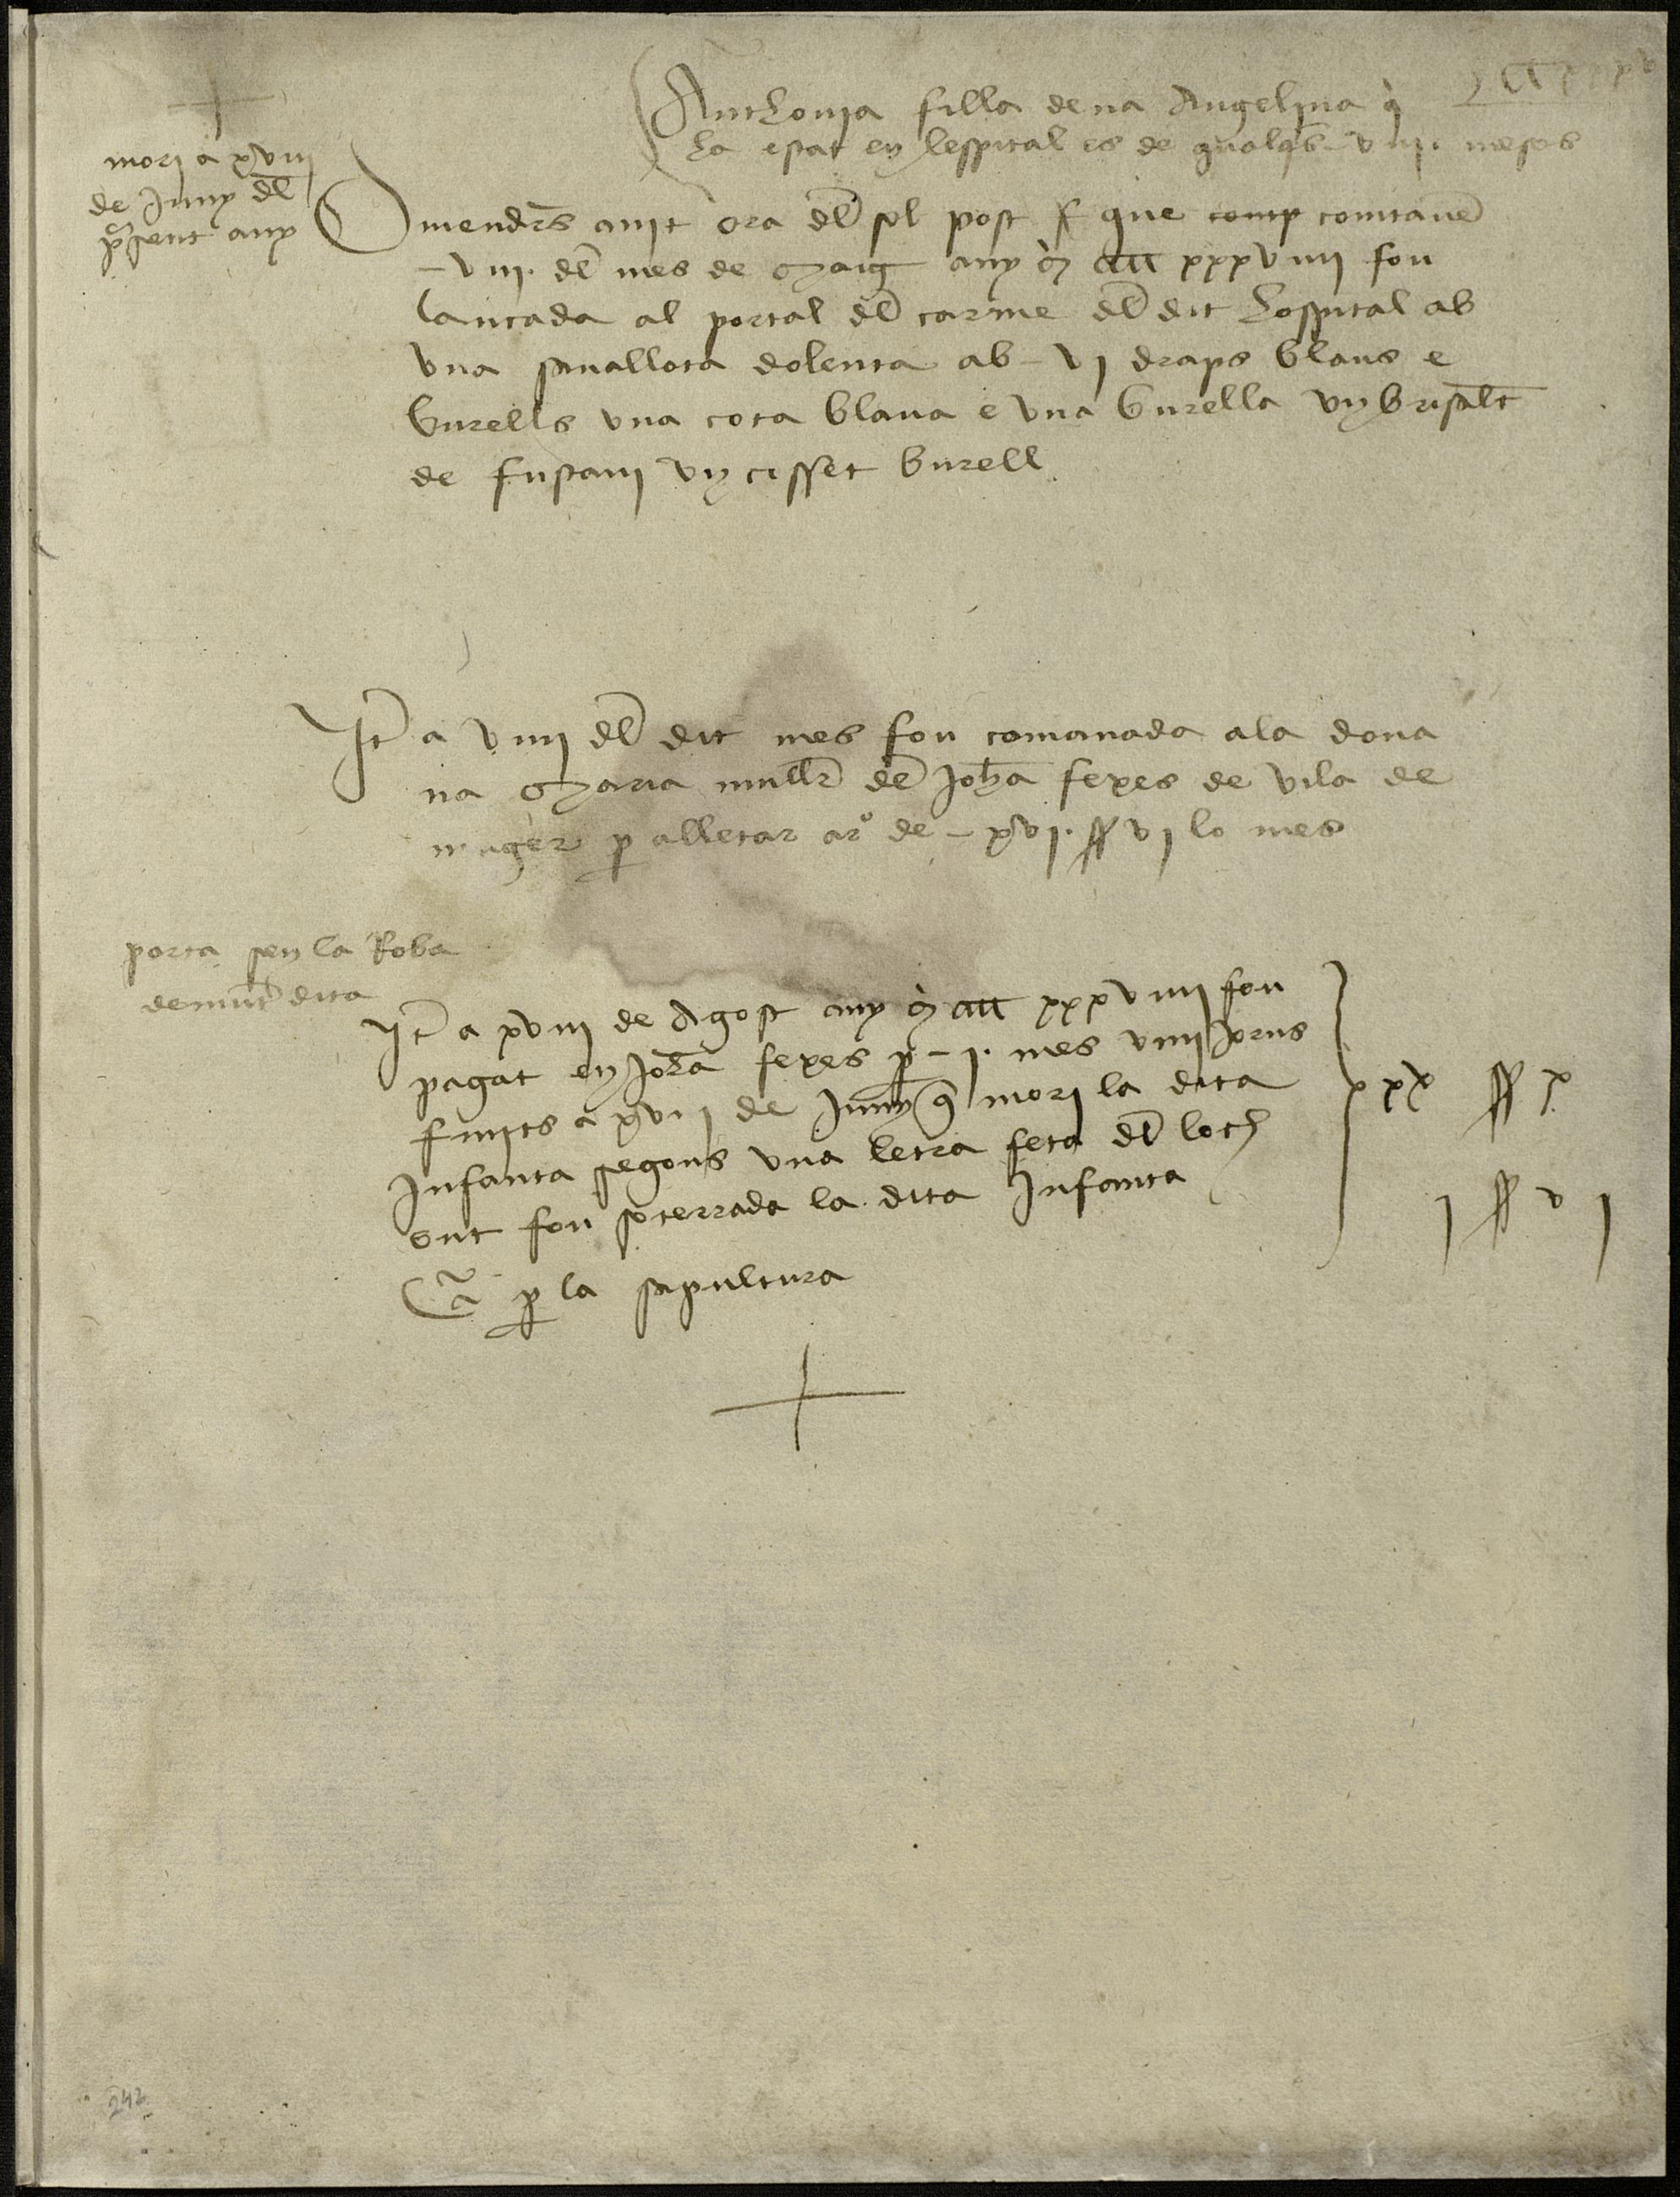 Anthonia filla de na Angelina q̄
ha estat en lespital es de qualqs̄ viii. meses
mori a xviii
de Juny dl̄
p̄sent any
Divendrs̄ anit ora dl̄ sol post f que comp comtauē
viii. dl̄ mes de Maig any M cccc xxxviiii fou
lançada al portal dl̄ carme dl̄ dit hospital ab
vna dolenta ab vi draps blaus e
burells vna cota blaua e vna burella vn brisalt
de fustani vn cisset burell
It̄ a viiii dl̄ dit mes fou comanada a la dona
na Maria mullr̄ de Joha fexes de vila de
p alletar aro de xvi. ss vi lo mes
porta sen la Roba
demūt dita
It̄ a xviii de Agost any M cccc xxxviiii fou
pagat en Joha fexes p i. mes viiii jorns
finits a xvii de Juny q̄ mori la dita
Infanta segons vna letra feta dl̄ loch
ont fou soterrada la dita Infanta
p la sepultura
xxx ss x
i ss vi
242